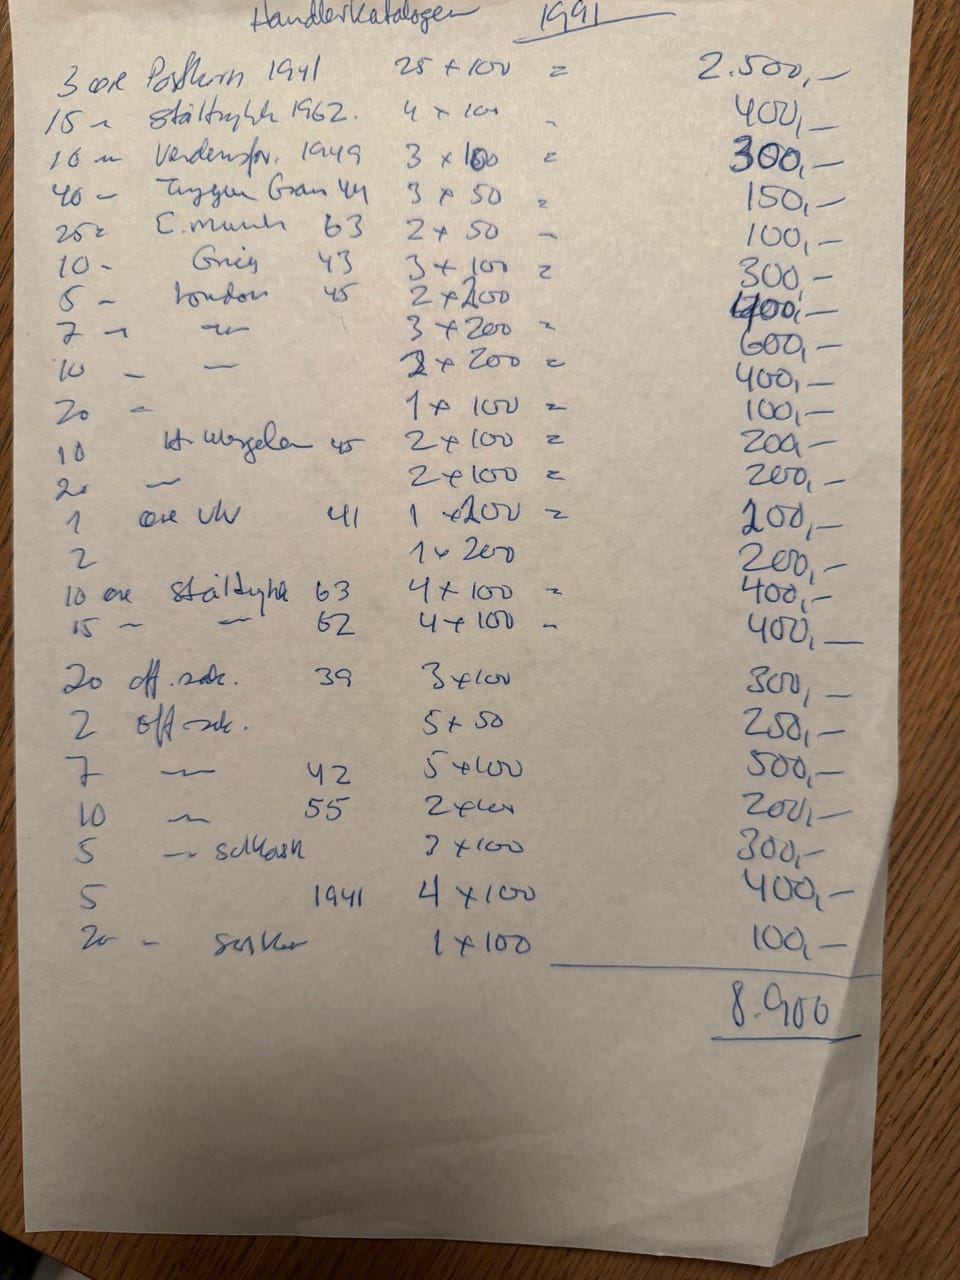 Handlerkatalogen 1991
3 øre Posthorn 1941 25 x 100 = 2.500,-
15 " Ståltrykk 1962. 4 x 100 " 400,-
10 " Verdenspf. 1949 3 x 100 = 300,-
40 " Tryggve Gran 44 3 x 50 = 150,-
25 " E. Munch 63 2 x 50 - 100,-
10 - Grieg 43 3 x 100 = 300,-
5 - London 45 2 x 200 400,-
7 - " 3 x 200 = 600,-
10 - - 2 x 200 = 400,-
20 - 1 x 100 = 100,-
10 H. Wergelan 45 2 x 100 = 200,-
20 - 2 x 100 = 200,-
1 øre 41 1 x 200 = 200,-
2 1 x 200 200,-
10 øre Ståltrykk 63 4 x 100 = 400,-
15 - - 62 4 x 100 - 400,-
20 off. sak. 39 3 x 100 300,-
2 off. sak. 5 x 50 250,-
7 - 42 5 x 100 500,-
10 - 55 2 x 100 200,-
5 - 3 x 100 300,-
5 1941 4 x 100 400,-
20 - 1 x 100 100,-
8.900